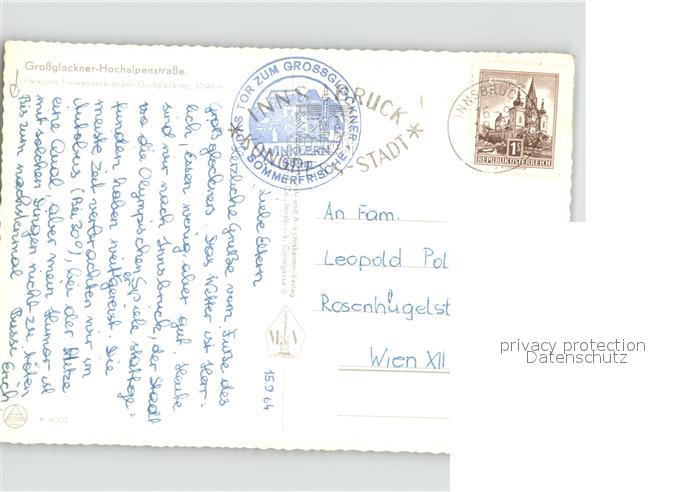 Großglockner-Hochalpenstraße.
Parkplatz Freiwandeck gegen Großglockner, 3798 m
TOR ZUM GROSSGLOCKNER
WINKLERN
SOMMERFRISCHE
INNSBRUCK
*KONGRESS-STADT*
INNSBRUCK
1S
REPUBLIK ÖSTERREICH
15.9.64
Liebe Eltern
Herzliche Grüße vom Fuße des
Großglockners. Das Wetter ist herr-
lich, Essen wenig, aber gut. Heute
sind wir nach Innsbruck, der Stadt
wo die Olympischen Spiele stattge-
funden haben, weitgereist. Die
meiste Zeit verbrachten wir im
Autobus (Bei 30°), bei der Hitze
eine Qual, aber mein Humor ist
mit solchen Dingen nicht zu töten
Bis zum nächstenmal Bussi Erich
An Fam.
Leopold Pol
Rosenhügelst
Wien XII
4002
privacy protection
Datenschutz